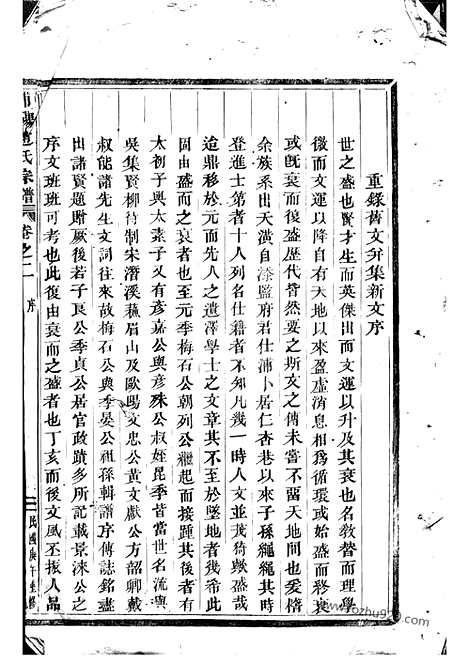 重錄舊文弁集新文序
世之盛也賢才生而英傑出而文運以升及其衰也名教替而理學
微而文運以降自有天地以來盈虛消息相爲循環或始盛而終衰
或旣衰而後盛歷代皆然要之斯文之傳未嘗不留天地間也爰惟
余族系出天潢自漆監府君仕浦卜居仁杏巷以來子孫繩繩其時
登進士第者十人列名仕籍者不知凡幾一時人文並茂猗歟盛哉
迨鼎移於元而先人之遺澤學士之文章其不至於墜地者幾希此
固由盛而之衰者也至元季梅石公朝列公繼起而接踵其後者有
太初子與太素子又有彦嘉公與彦殊公叔姪昆季皆當世名流與
吳集賢柳待制宋潛溪蘇眉山及歐陽文忠公黃文獻公方韶卿戴
叔能諸先生文詞往來故梅石公與季晏公祖孫輯譜序傳誌銘盡
出諸賢題贈厥後若子艮公季貞公居官政蹟多所記載景涑公之
序文班班可考也此復由衰而之盛者也丁亥而後文風丕振人品
浦陽趙氏宗譜
卷之二
序
民國庚午重修
www.yozhu910.com